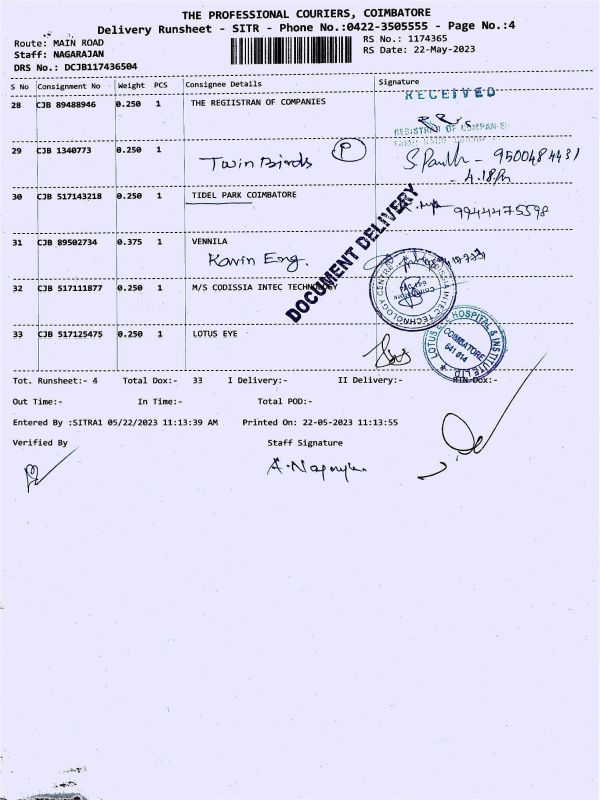 THE PROFESSIONAL COURIERS, COIMBATORE
Delivery Runsheet - SITR - Phone No.:0422-3505555 - Page No.:4
Route: MAIN ROAD RS No.: 1174365
Staff: NAGARAJAN RS Date: 22-May-2023
DRS No.: DCJB117436504
S No Consignment No Weight PCS Consignee Details Signature
28 CJB 89488946 0.250 1 THE REGIISTRAN OF COMPANIES
RECEIVED
REGISTRAR OF COMPANIES
29 CJB 1340773 0.250 1
Twin Birds P
9500484431
4.18
30 CJB 517143218 0.250 1 TIDEL PARK COIMBATORE
9944475598
DOCUMENT DELIVERY
31 CJB 89502734 0.375 1 VENNILA
Kavin Eng.
32 CJB 517111877 0.250 1 M/S CODISSIA INTEC TECHNOLOGY
CODISSIA INTEC TECHNOLOGY CENTRE
33 CJB 517125475 0.250 1 LOTUS EYE
LOTUS EYE HOSPITAL & INSTITUTE LTD
COIMBATORE
641 014
Tot. Runsheet:- 4 Total Dox:- 33 I Delivery:- II Delivery:- RTN Dox:-
Out Time:- In Time:- Total POD:-
Entered By :SITRA1 05/22/2023 11:13:39 AM Printed On: 22-05-2023 11:13:55
Verified By Staff Signature